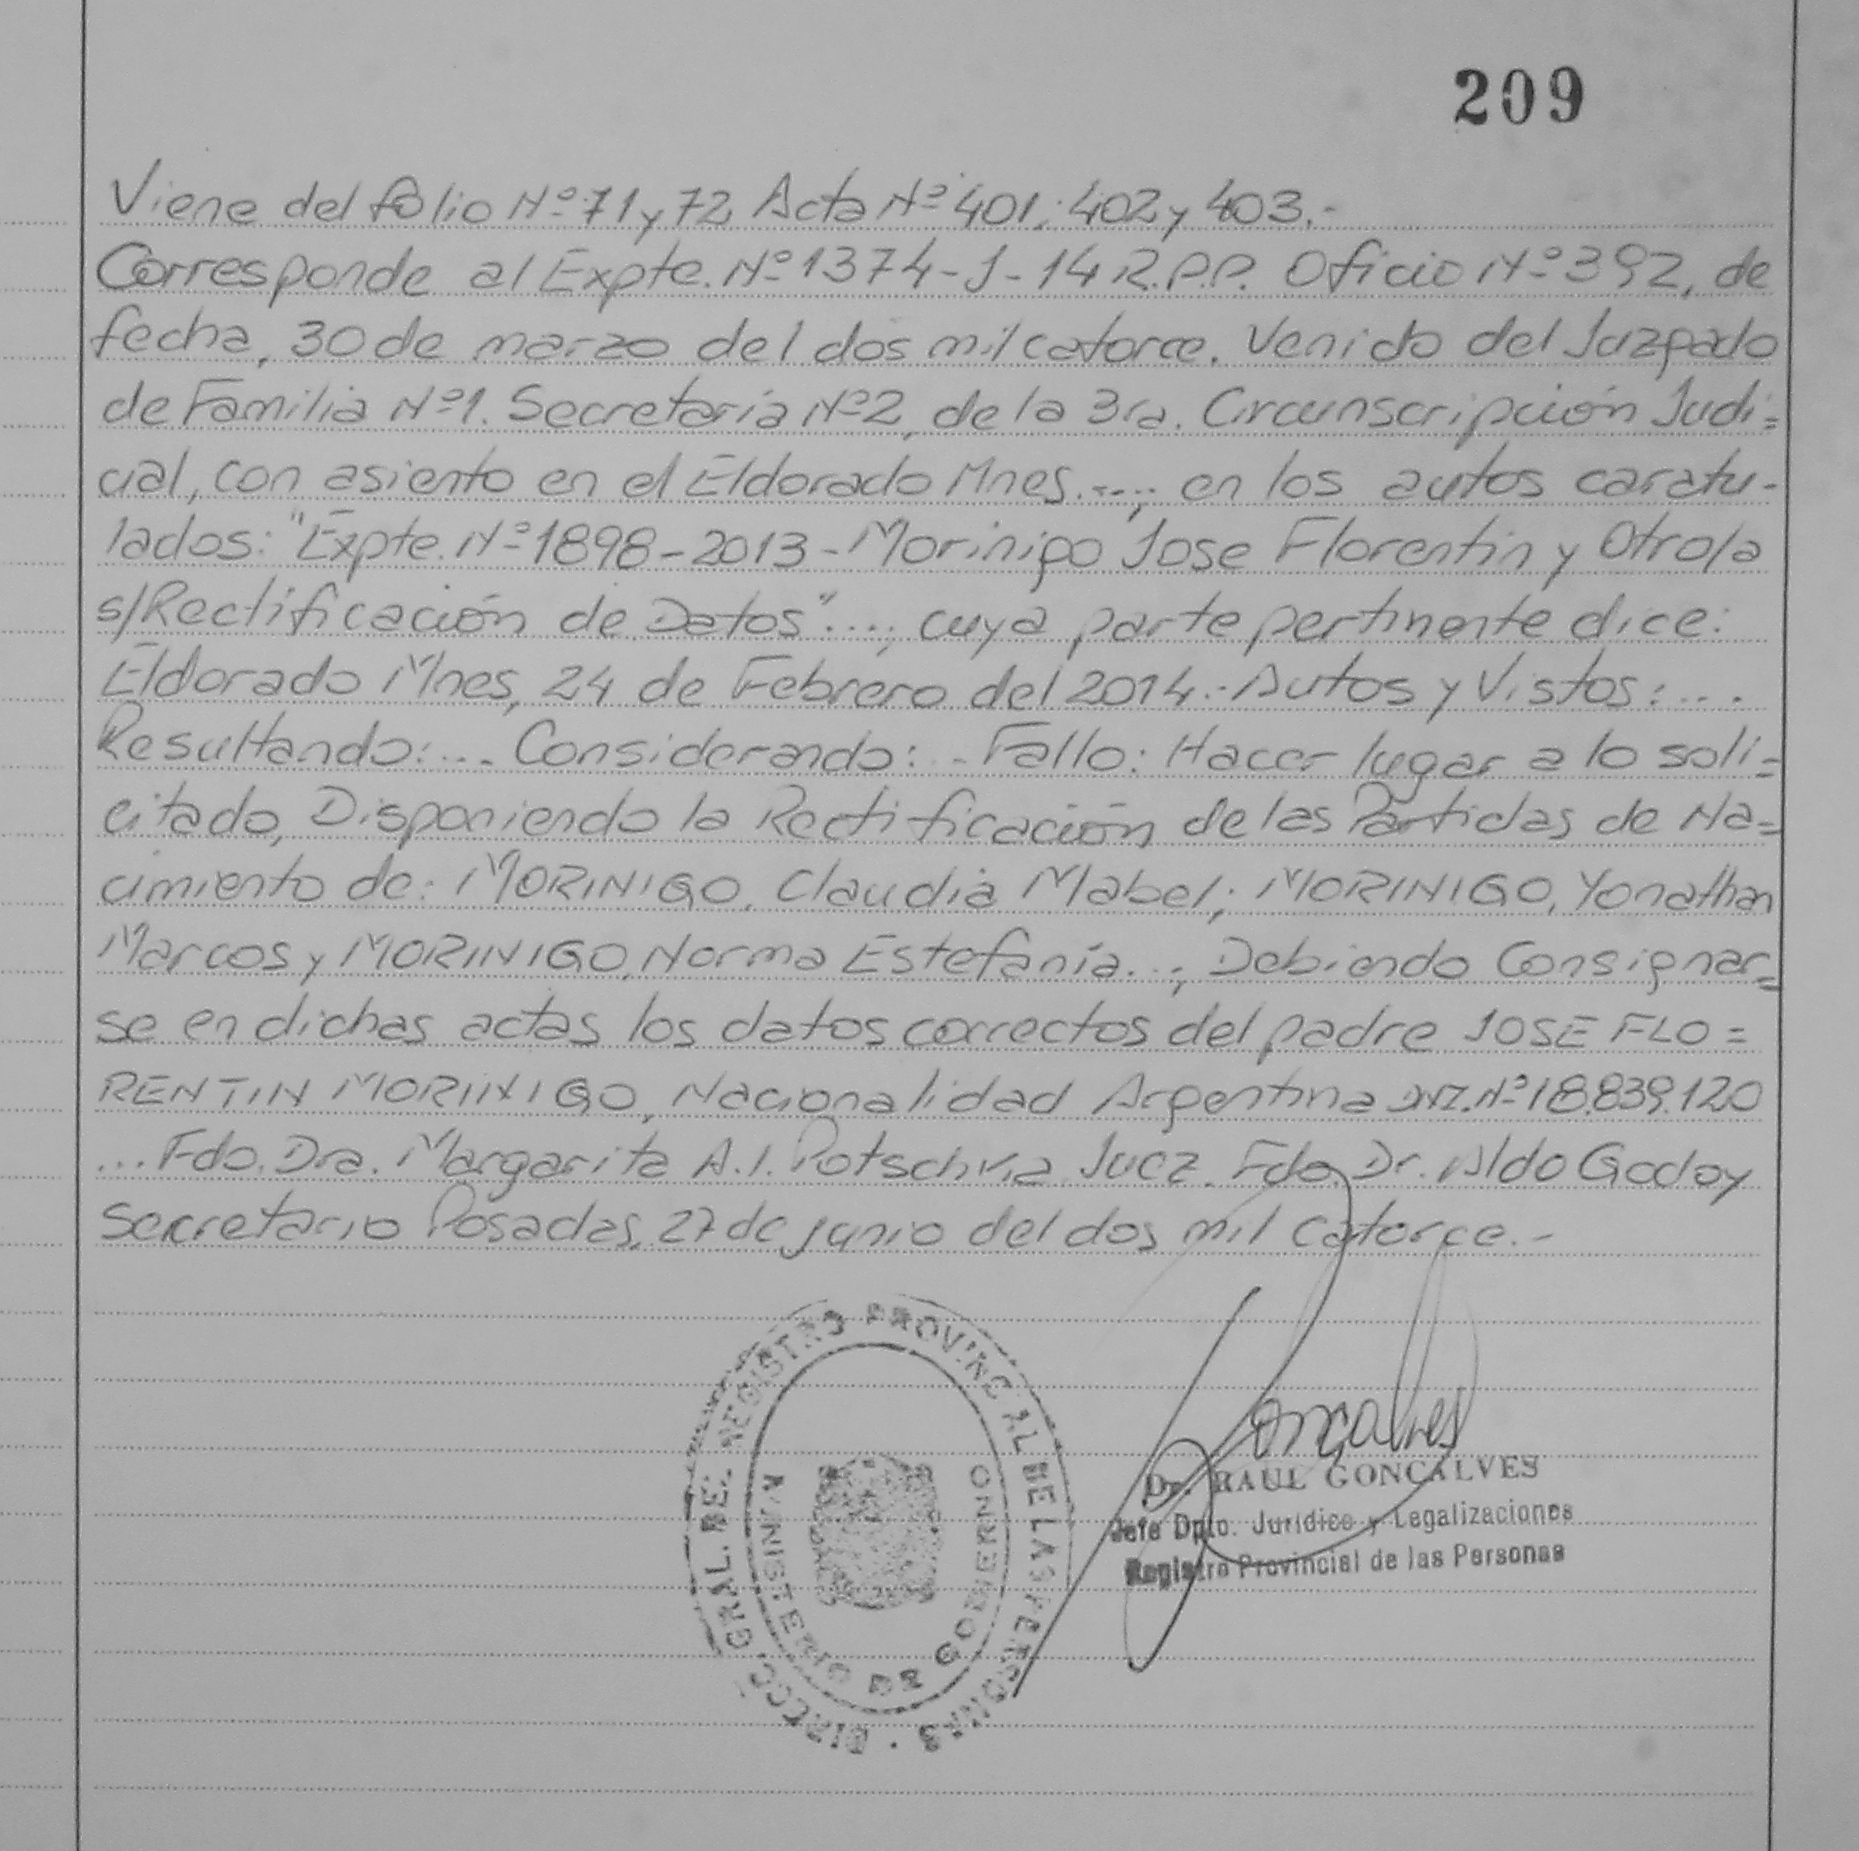 209
Viene del folio Nº 71 y 72 Acta Nº 401; 402 y 403.-
Corresponde al Expte. Nº 1374-J-14 R.P.P. Oficio Nº 392, de
fecha, 30 de marzo del dos mil catorce. Venido del Juzgado
de Familia Nº1. Secretaría Nº2, de la 3ra. Circunscripción Judi=
cial, con asiento en el Eldorado Mnes.----; en los autos caratu-
lados: "Expte. Nº 1898-2013-Morinigo Jose Florentin y Otro/a
s/Rectificación de Datos"....; cuya parte pertinente dice:
Eldorado Mnes, 24 de Febrero del 2014.- Autos y Vistos:....
Resultando:.... Considerando:... Fallo: Hacer lugar a lo soli=
citado, Disponiendo la Rectificación de las Partidas de Na=
cimiento de: MORINIGO, Claudia Mabel; MORINIGO, Yonathan
Marcos y MORINIGO, Norma Estefanía...; Debiendo Consignar=
se en dichas actas los datos correctos del padre JOSE FLO=
RENTIN MORINIGO, Nacionalidad Argentina DNI. Nº 18.839.120
...Fdo. Dra. Margarita A.I. Potschka Juez. Fdo. Dr. Aldo Godoy
Secretario Posadas, 27 de junio del dos mil catorce.-
DIRECC. GRAL. DEL REGISTRO PROVINCIAL DE LAS PERSONAS
MINISTERIO DE GOBIERNO
Goncalves
Dr. RAUL GONCALVES
Jefe Dpto. Jurídico y Legalizaciones
Registro Provincial de las Personas